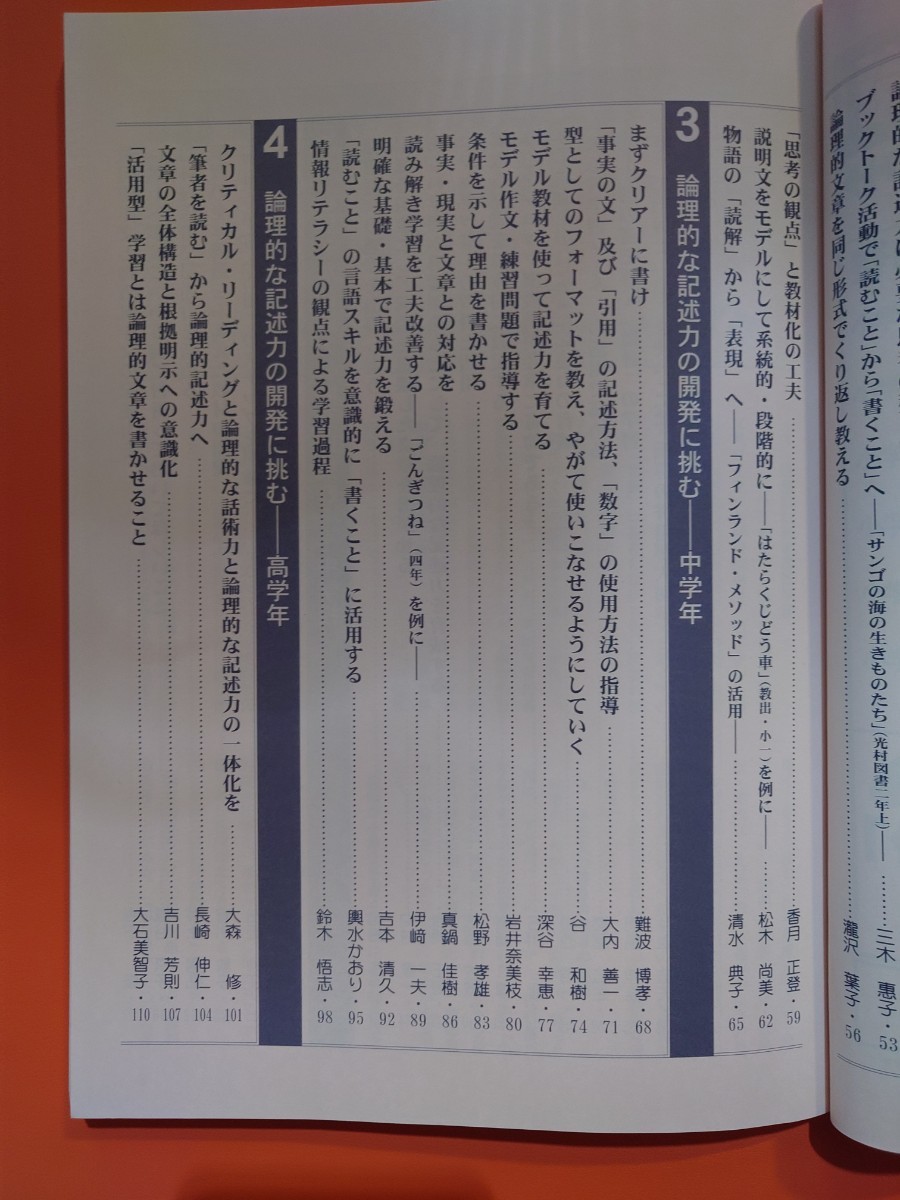 ブックトーク活動で「読むこと」から「書くこと」へ――「サンゴの海の生きものたち」(光村図書二年上)――……三木 惠子・53
論理的文章を同じ形式でくり返し教える……瀧沢 葉子・56
「思考の観点」と教材化の工夫……香月 正登・59
説明文をモデルにして系統的・段階的に――「はたらくじどう車」(教出・小一)を例に――……松木 尚美・62
物語の「読解」から「表現」へ――「フィンランド・メソッド」の活用――……清水 典子・65
3 論理的な記述力の開発に挑む――中学年
まずクリアーに書け……難波 博孝・68
「事実の文」及び「引用」の記述方法、「数字」の使用方法の指導……大内 善一・71
型としてのフォーマットを教え、やがて使いこなせるようにしていく……谷 和樹・74
モデル教材を使って記述力を育てる……深谷 幸恵・77
モデル作文・練習問題で指導する……岩井奈美枝・80
条件を示して理由を書かせる……松野 孝雄・83
事実・現実と文章との対応を……真鍋 佳樹・86
読み解き学習を工夫改善する――「ごんぎつね」(四年)を例に――……伊﨑 一夫・89
明確な基礎・基本で記述力を鍛える……吉本 清久・92
「読むこと」の言語スキルを意識的に「書くこと」に活用する……輿水かおり・95
情報リテラシーの観点による学習過程……鈴木 悟志・98
4 論理的な記述力の開発に挑む――高学年
クリティカル・リーディングと論理的な話術力と論理的な記述力の一体化を……大森 修・101
「筆者を読む」から論理的記述力へ……長崎 伸仁・104
文章の全体構造と根拠明示への意識化……吉川 芳則・107
「活用型」学習とは論理的文章を書かせること……大石美智子・110